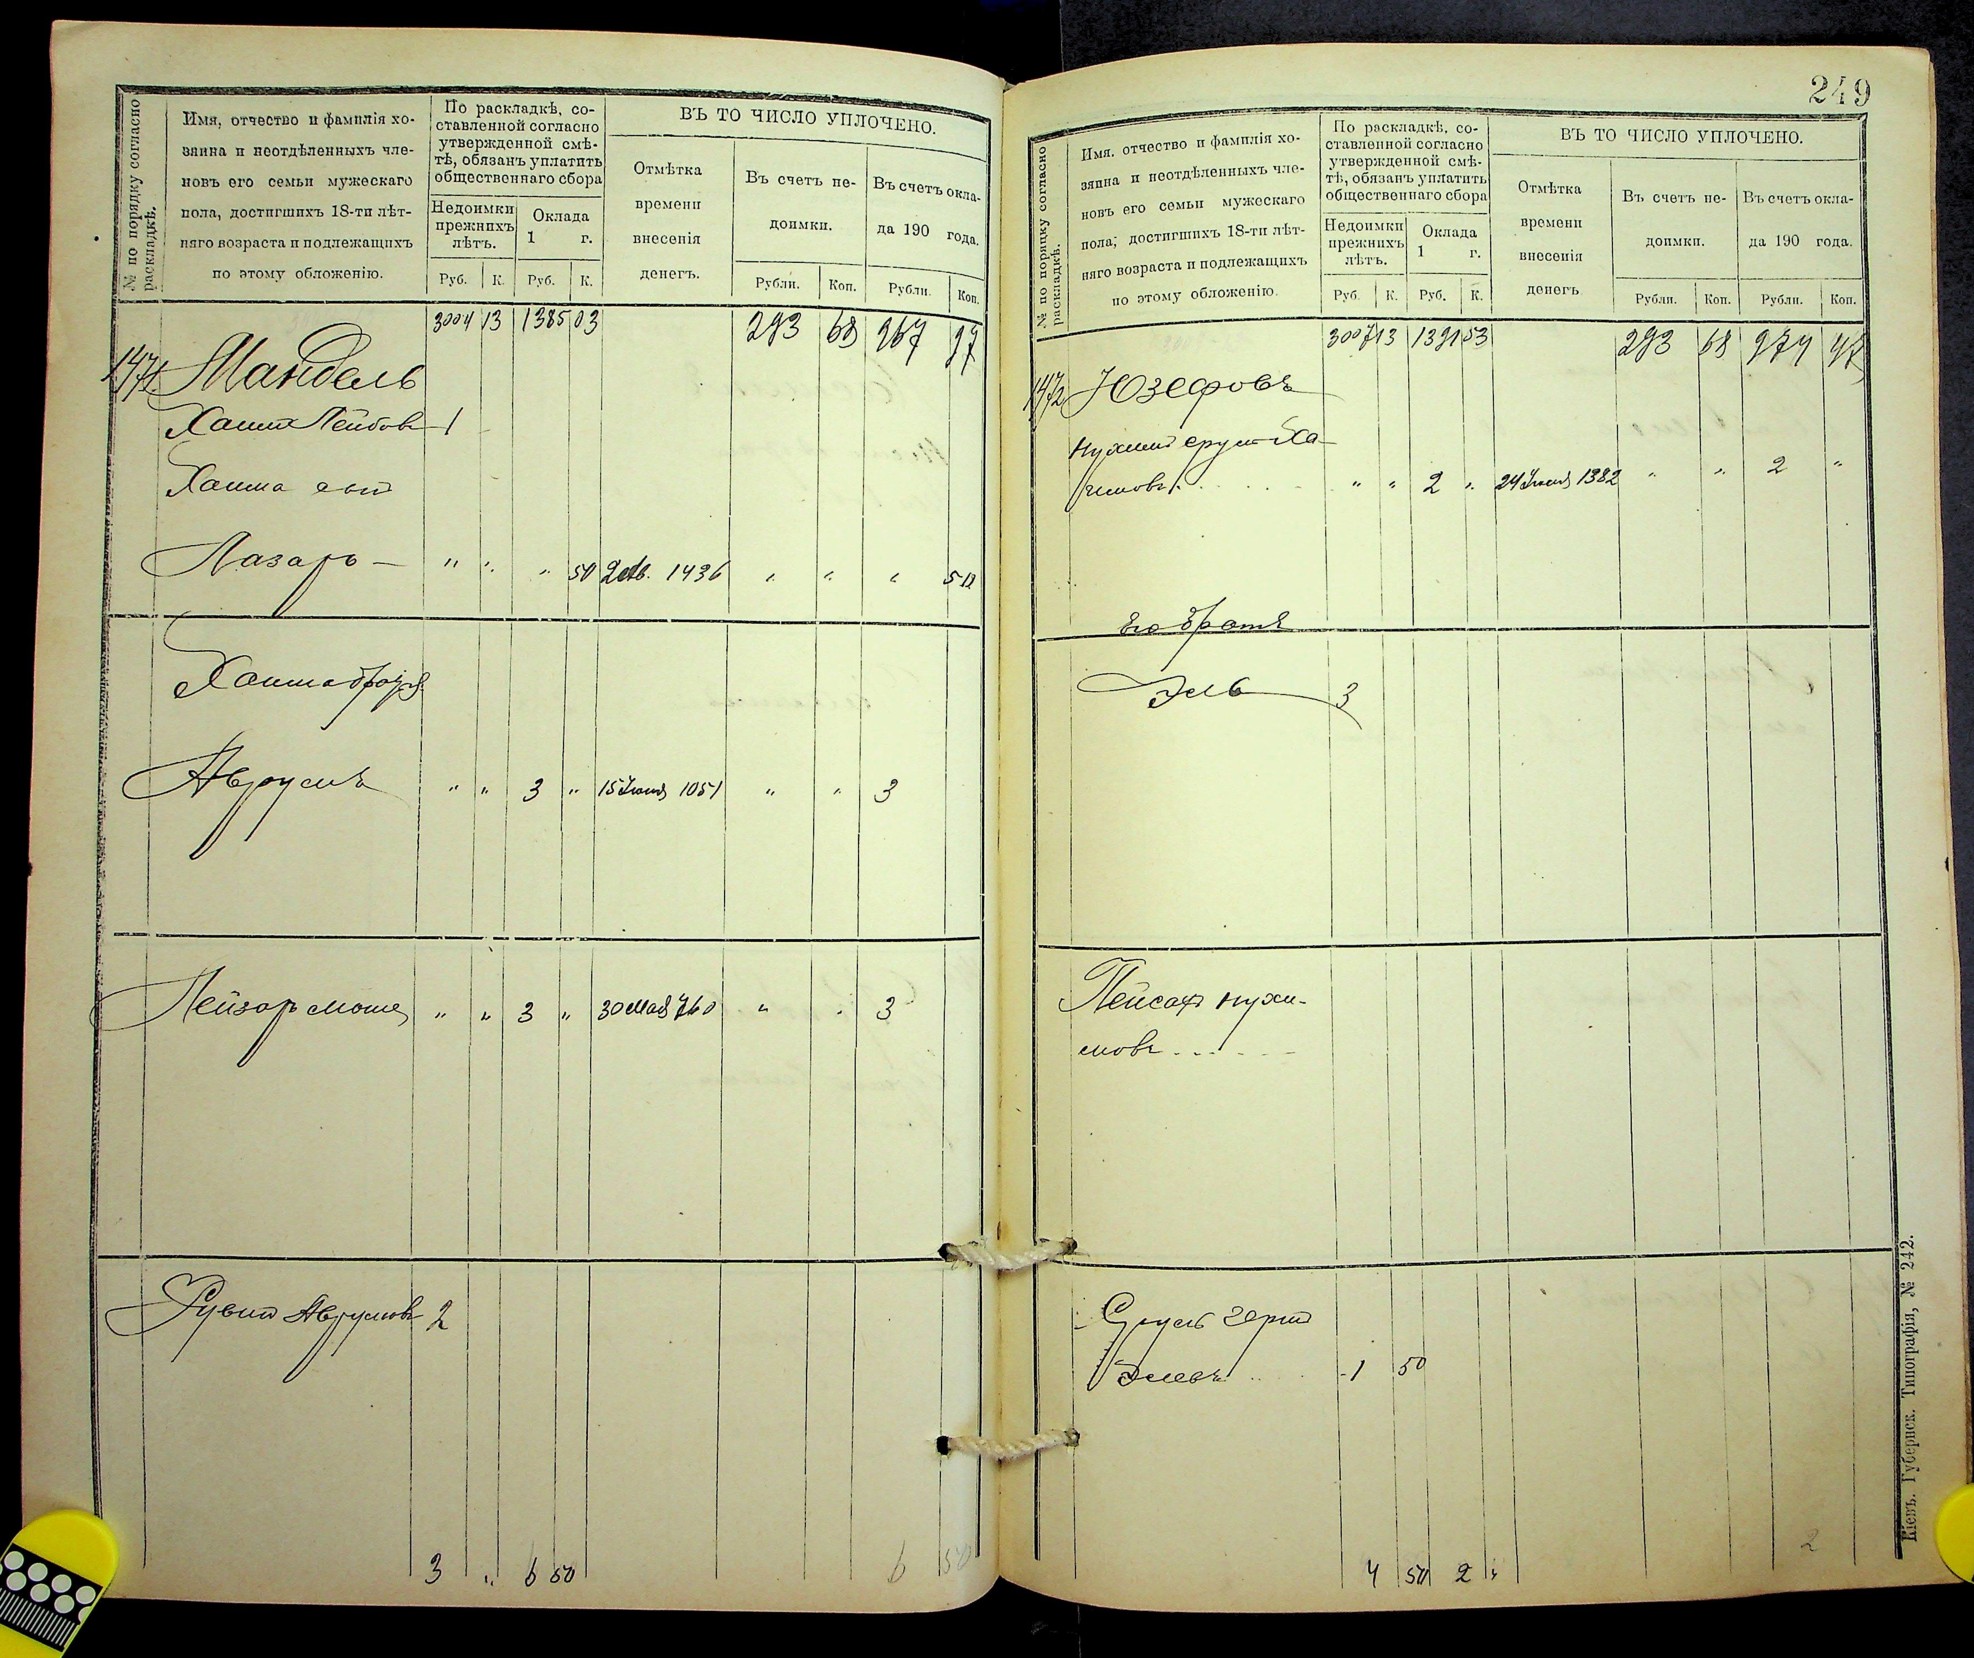 № по порядку согласно
раскладкѣ.
Имя, отчество и фамилія хо-
зяина и неотдѣленныхъ чле-
новъ его семьи мужескаго
пола, достигшихъ 18-ти лѣт-
няго возраста и подлежащихъ
по этому обложенію.
По раскладкѣ, со-
ставленной согласно
утвержденной смѣ-
тѣ, обязанъ уплатить
общественнаго сбора
Недоимки
прежнихъ
лѣтъ.
Оклада
1 г.
Руб. К. Руб. К.
ВЪ ТО ЧИСЛО УПЛОЧЕНО.
Отмѣтка
времени
внесенія
денегъ.
Въ счетъ не-
доимки.
Въ счетъ окла-
да 190 года.
Рубли. Коп. Рубли. Коп.
3004 13 1385 03 293 68 967 97
1471 Мандель
Хаимъ Лейбовъ 1
Хаима сынъ
Лазарь — " " " 50 2 Авг. 1436 " " " 50
Хаима братья
Аврумъ " " 3 " 15 Іюня 1051 " " 3
Лейзоръ Моше " " 3 " 30 Мая 760 " " 3
Рувинъ Аврумовъ 2
3 " 6 50 6 50
249
№ по порядку согласно
раскладкѣ.
Имя, отчество и фамилія хо-
зяина и неотдѣленныхъ чле-
новъ его семьи мужескаго
пола; достигшихъ 18-ти лѣт-
няго возраста и подлежащихъ
по этому обложенію.
По раскладкѣ, со-
ставленной согласно
утвержденной смѣ-
тѣ, обязанъ уплатить
общественнаго сбора
Недоимки
прежнихъ
лѣтъ.
Оклада
1 г.
Руб. К. Руб. К.
ВЪ ТО ЧИСЛО УПЛОЧЕНО.
Отмѣтка
времени
внесенія
денегъ
Въ счетъ не-
доимки.
Въ счетъ окла-
да 190 года.
Рубли. Коп. Рубли. Коп.
3007 13 1391 53 293 68 974 47
1472 Юзефовъ
Нухимъ Срулъ Ха-
имовъ. " " 2 " 24 Іюня 1382 " " 2 "
Его братъ
Эль 3
Пейсахъ Нухи-
мовъ
Сруль Герш
Элевъ 1 50
4 50 2 " 2
Кіевъ. Губернск. Типографія, № 242.